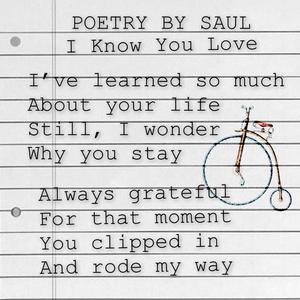 POETRY BY SAUL
I Know You Love
I've learned so much
About your life
Still, I wonder
Why you stay
Always grateful
For that moment
You clipped in
And rode my way